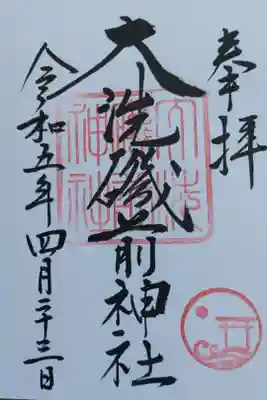 奉拝
大洗磯前神社
令和五年四月二十三日
大洗
磯前
神社